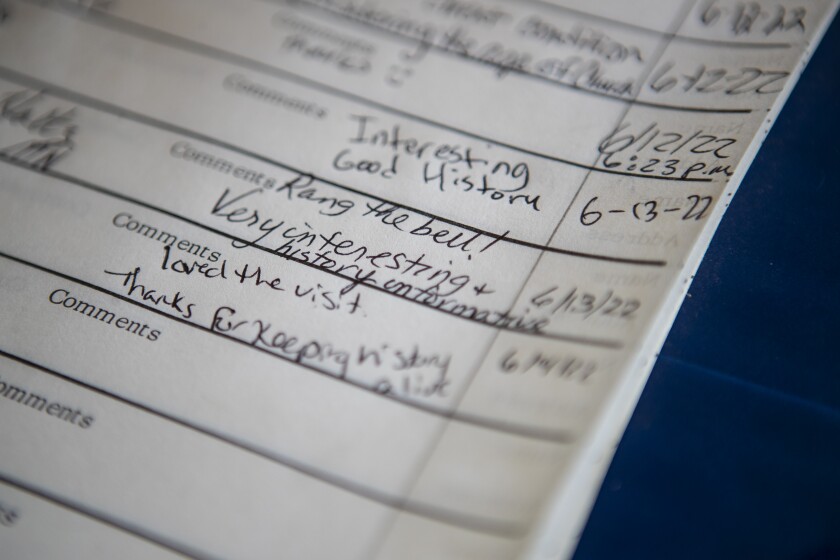 condition 6-12-22
the age of Church 6-12-22
Comments
thanks
Comments 6/12/22
Interesting 6:23 p.m.
Good History 6-13-22
Comments Rang the bell!
Very interesting +
history informative 6/13/22
Comments loved the visit.
Thanks for Keeping history
alive
Comments
omments